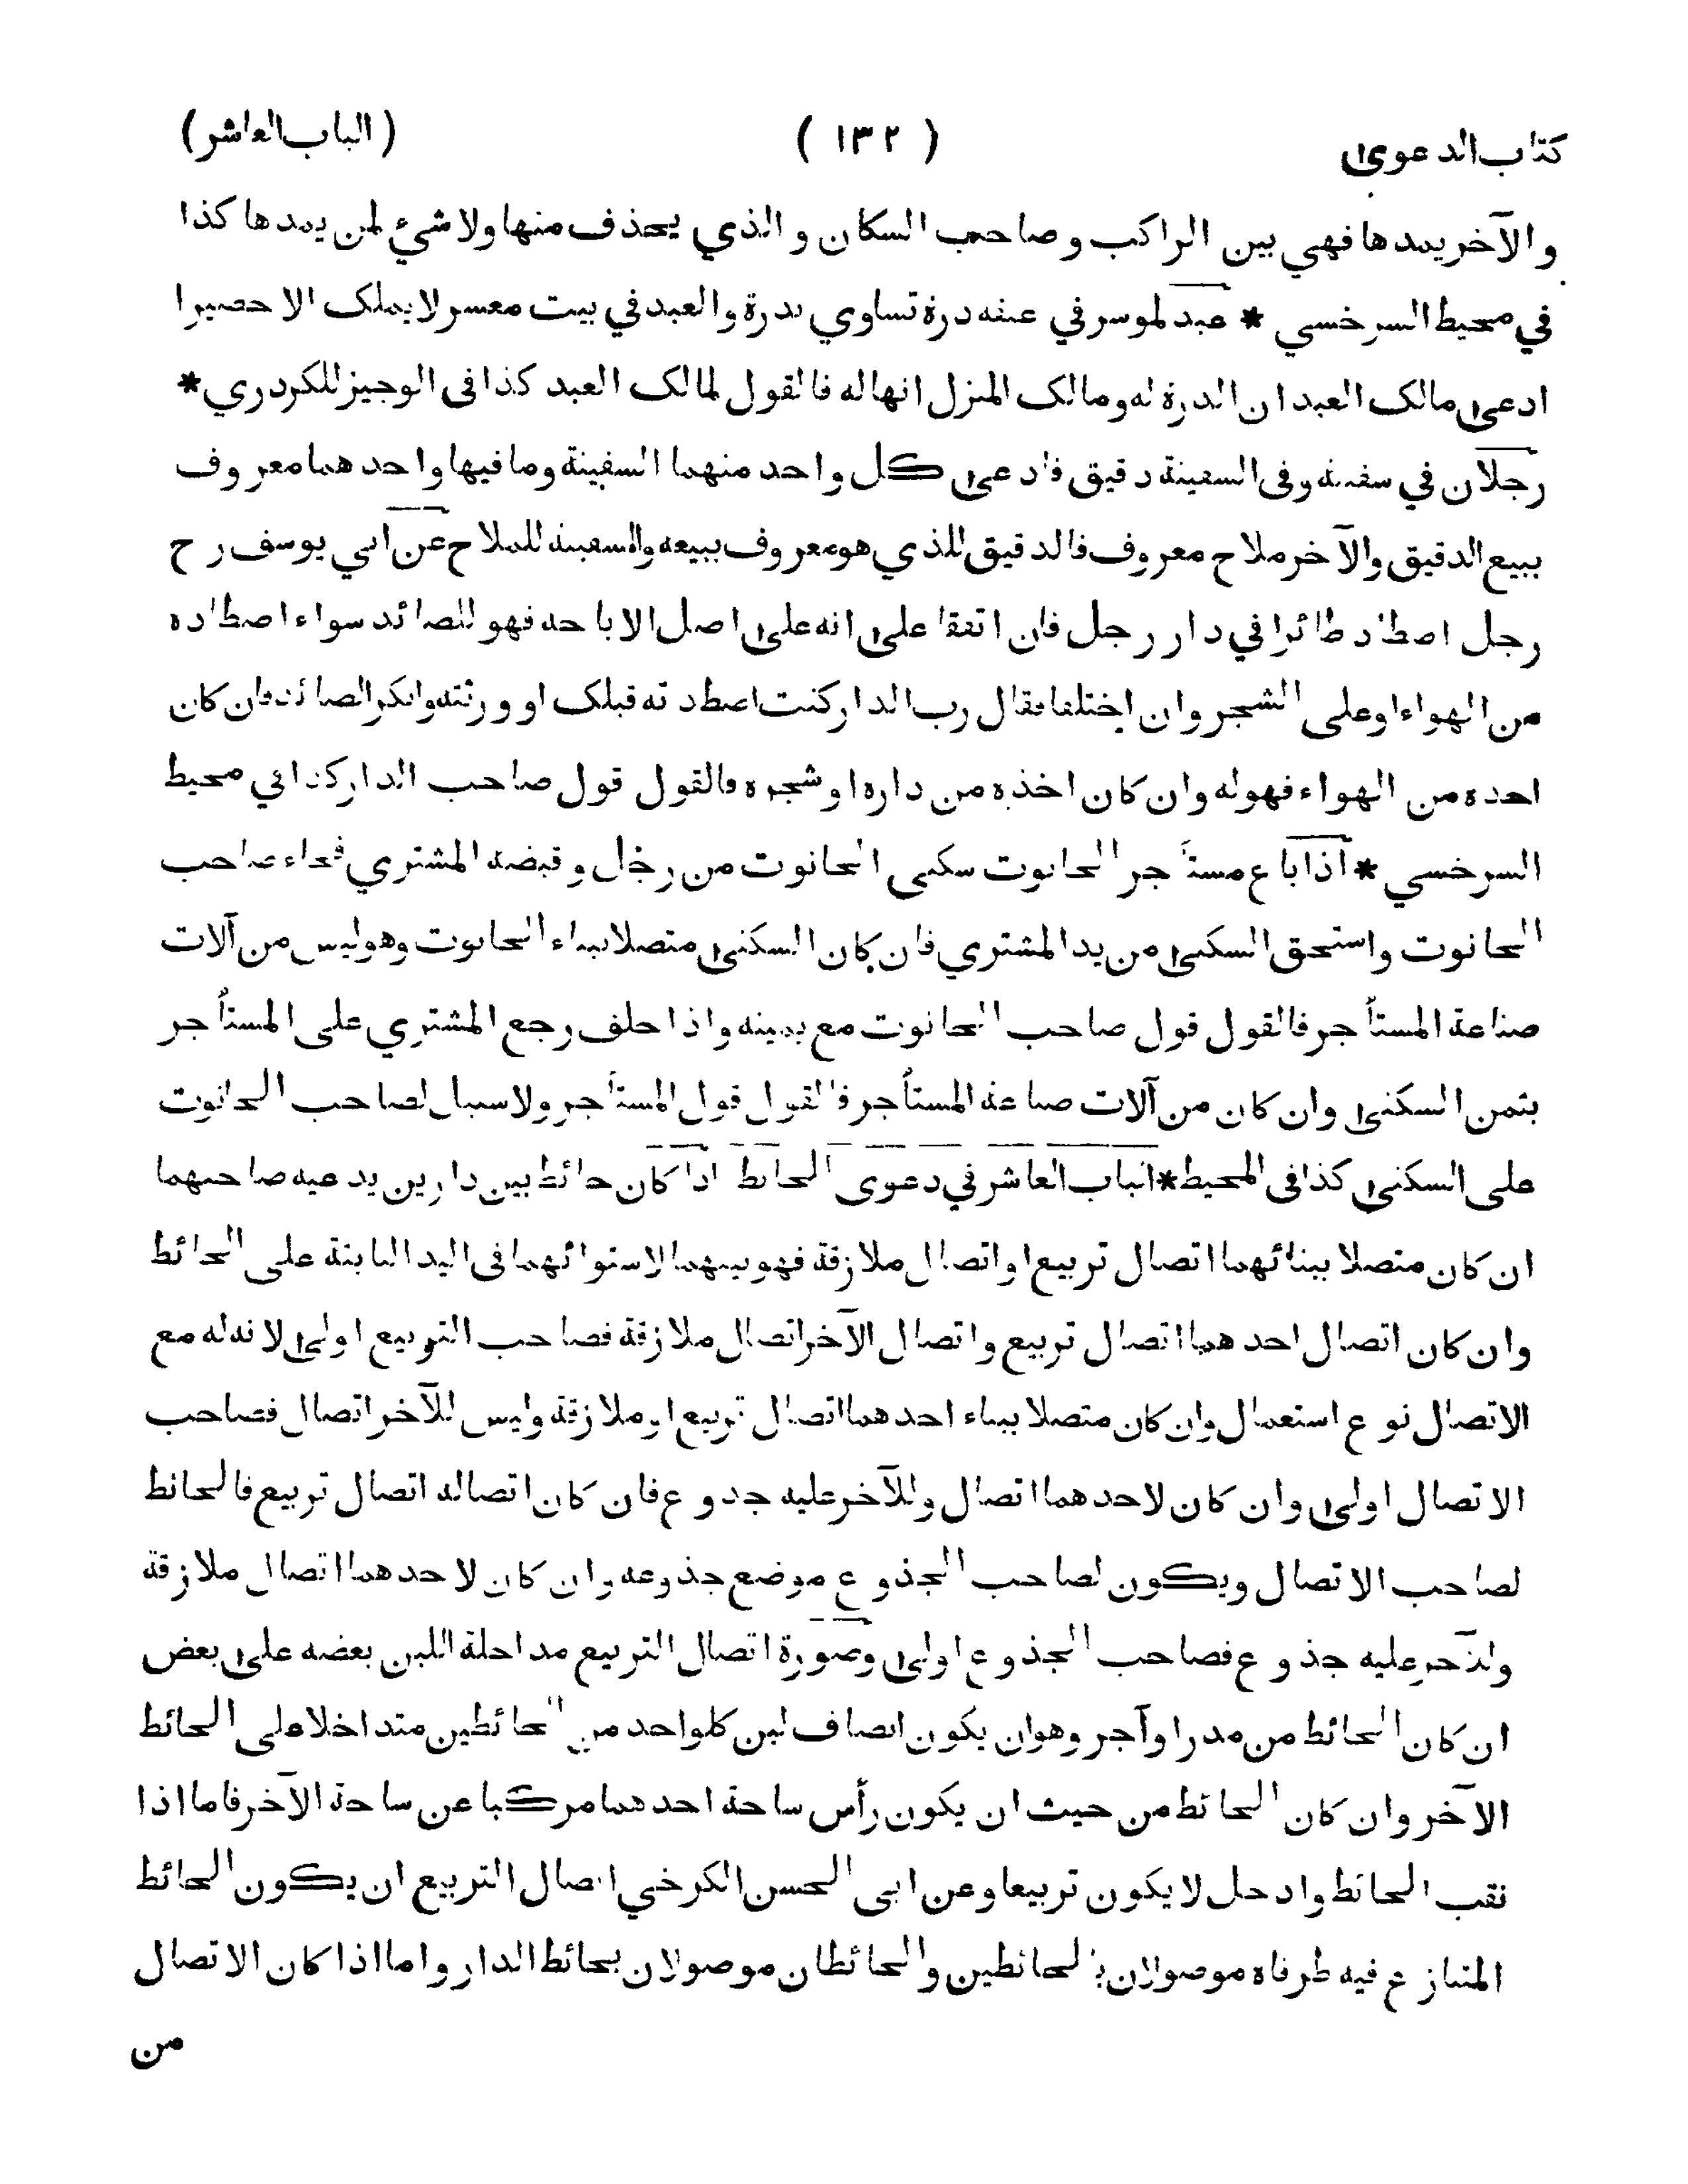 كتاب الدعوى
( ١٣٢ )
(الباب العاشر)
والآخر يمدها فهي بين الراكب وصاحب السكان والذي يحذف منها ولا شئ لمن يمدها كذا
في محيط السرخسي * عبد لموسر في عنقه درة تساوي بدرة والعبد في بيت معسر لا يملك الا حصيرا
ادعى مالك العبد ان الدرة له ومالك المنزل انها له فالقول لمالك العبد كذا فى الوجيز للكردري *
رجلان في سفينة وفى السفينة دقيق فادعى كل واحد منهما السفينة وما فيها واحدهما معروف
ببيع الدقيق والآخر ملاح معروف فالدقيق للذي هو معروف ببيعه والسفينة للملاح عن ابي يوسف رح
رجل اصطاد طائرا في دار رجل فان اتفقا على انه على اصل الاباحه فهو للصائد سواء اصطاده
من الهواء او على الشجر وان اختلفا فقال رب الدار كنت اصطدته قبلك او ورثته وانكر الصائد فان كان
اخذه من الهواء فهو له وان كان اخذه من داره او شجره فالقول قول صاحب الدار كذا في محيط
السرخسي * اذا باع مستأجر الحانوت سكنى الحانوت من رجل وقبضه المشتري فجاء صاحب
الحانوت واستحق السكنى من يد المشتري فان كان السكنى متصلا ببناء الحانوت وهو ليس من آلات
صناعة المستأجر فالقول قول صاحب الحانوت مع يمينه واذا حلف رجع المشتري على المستأجر
بثمن السكنى وان كان من آلات صناعة المستأجر فالقول قول المستأجر ولا سبيل لصاحب الحانوت
على السكنى كذا فى المحيط * الباب العاشر في دعوى الحائط اذا كان حائط بين دارين يدعيه صاحبهما
ان كان متصلا ببنائهما اتصال تربيع او اتصال ملازقة فهو بينهما لاستوائهما فى اليد الثابتة على الحائط
وان كان اتصال احدهما اتصال تربيع واتصال الآخر اتصال ملازقة فصاحب التربيع اولى لانه له مع
الاتصال نوع استعمال وان كان متصلا ببناء احدهما اتصال تربيع او ملازقة وليس للآخر اتصال فصاحب
الاتصال اولى وان كان لاحدهما اتصال وللآخر عليه جذوع فان كان اتصاله اتصال تربيع فالحائط
لصاحب الاتصال ويكون لصاحب الجذوع موضع جذوعه وان كان لاحدهما اتصال ملازقة
وللآخر عليه جذوع فصاحب الجذوع اولى وصورة اتصال التربيع مداخلة اللبن بعضه على بعض
ان كان الحائط من مدر او آجر وهو ان يكون انصاف لبن كلواحد من الحائطين متداخلا على الحائط
الآخر وان كان الحائط من حيث ان يكون رأس ساحة احدهما مركبا عن ساحة الآخر فاما اذا
نقب الحائط وادخل لا يكون تربيعا وعن ابى الحسن الكرخي اتصال التربيع ان يكون الحائط
المتنازع فيه طرفاه موصولان بالحائطين والحائطان موصولان بحائط الدار واما اذا كان الاتصال
من